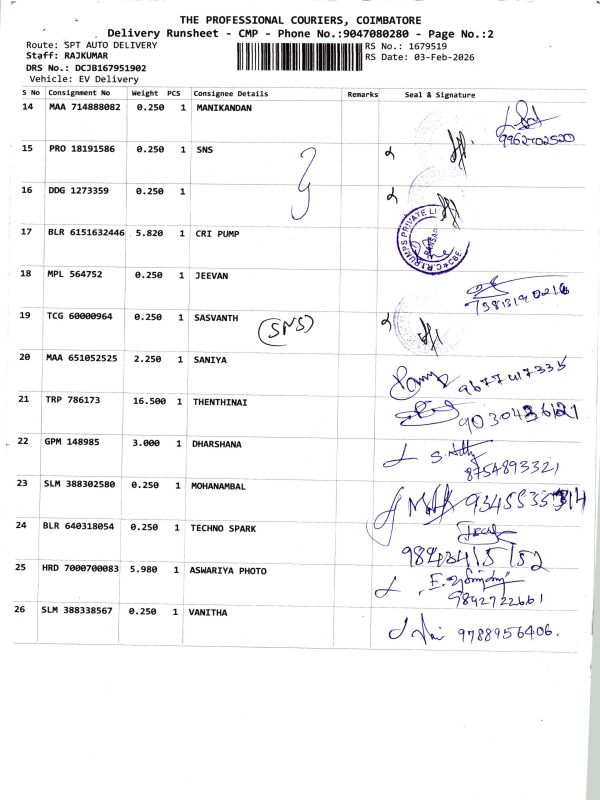 THE PROFESSIONAL COURIERS, COIMBATORE
Delivery Runsheet - CMP - Phone No.:9047080280 - Page No.:2
Route: SPT AUTO DELIVERY
Staff: RAJKUMAR
DRS No.: DCJB167951902
Vehicle: EV Delivery
RS No.: 1679519
RS Date: 03-Feb-2026
S No Consignment No Weight PCS Consignee Details Remarks Seal & Signature
14 MAA 714888082 0.250 1 MANIKANDAN
15 PRO 18191586 0.250 1 SNS
16 DDG 1273359 0.250 1
17 BLR 6151632446 5.820 1 CRI PUMP
18 MPL 564752 0.250 1 JEEVAN
19 TCG 60000964 0.250 1 SASVANTH (SNS)
20 MAA 651052525 2.250 1 SANIYA
21 TRP 786173 16.500 1 THENTHINAI
9030436121
22 GPM 148985 3.000 1 DHARSHANA
8754893321
23 SLM 388302580 0.250 1 MOHANAMBAL
24 BLR 640318054 0.250 1 TECHNO SPARK
25 HRD 7000700083 5.980 1 ASWARIYA PHOTO
9842722661
26 SLM 388338567 0.250 1 VANITHA
9788956406.